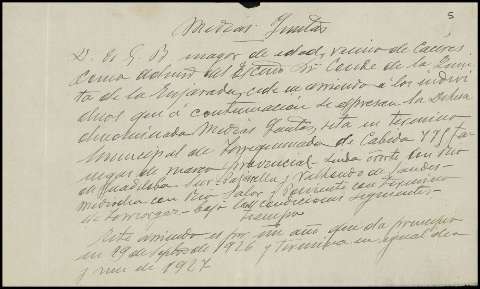 5
Medias Juntas
D. A. G. B. mayor de edad, vecino de Cáceres
como admor del Excmo Sr Conde de la Quin
ta de la Enjarada, cede en arriendo á los indivi
duos que á continuación se expresan la Dehesa
denominada Medias Juntas, sita en termino
Municipal de Torrequemada de Cabida 775 fa
negas de marco provincial- Linda norte con
de
mediodia con y Poniente con termino
de Torreorgaz- bajo las condiciones siguientes-
tiempo
Este arriendo es por un año que da principio
en 29 de septbre de 1926 y termina en igual dia
y mes de 1927